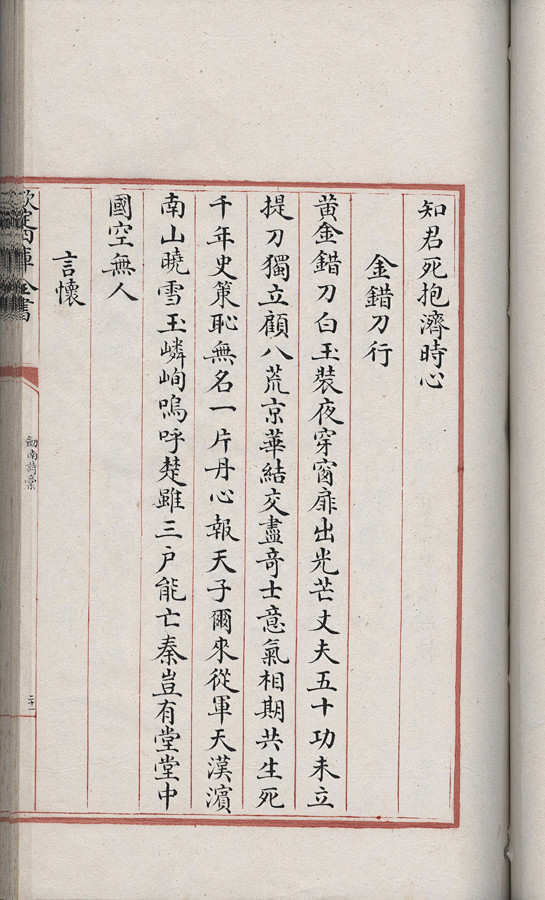 知君死抱濟時心
金錯刀行
黄金錯刀白玉裝夜穿窗扉出光芒丈夫五十功未立
提刀獨立顧八荒京華結交盡竒士意氣相期共生死
千年史䇿恥無名一片丹心報天子爾來從軍天漢濵
南山曉雪玉嶙峋嗚呼楚雖三户能亡秦豈有堂堂中
國空無人
言懷
欽定四庫全書
劒南詩稾